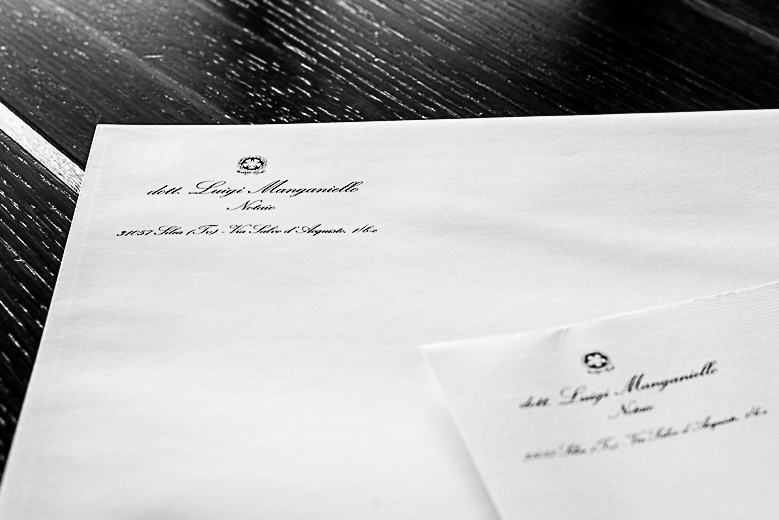 dott. Luigi Manganiello
Notaio
31057 Silea (Tv) - Via Salvo d'Acquisto,
dott. Luigi Manganiello
Notaio
Silea (Tv) - Via Salvo d'Acquisto,